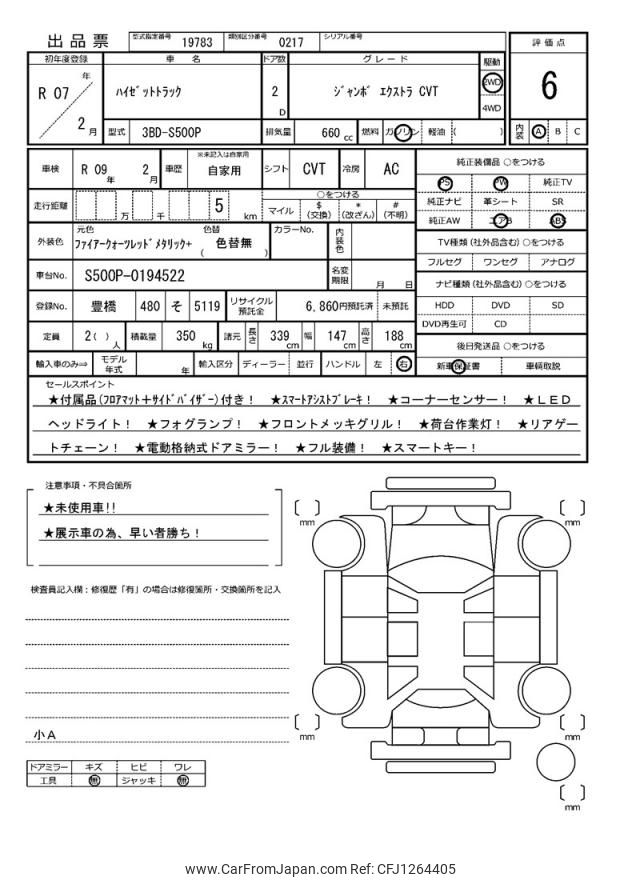 出品票 型式指定番号 19783 類別区分番号 0217 シリアル番号
初年度登録 車 名 ドア数 グレード 駆動 評価点
R 07 年 2 月 ハイゼットトラック 2 D ジャンボ エクストラ CVT 2WD 4WD 6
型式 3BD-S500P 排気量 660 cc 燃料 ガソリン 軽油 ( ) 内装 A B C
車検 R 09 年 2 月 車歴 ※未記入は自家用 自家用 シフト CVT 冷房 AC 純正装備品 ○をつける
PS PW 純正TV
走行距離 万 千 5 km ○をつける マイル $ (交換) * (改ざん) # (不明) 純正ナビ 革シート SR
純正AW エアB ABS
外装色 元色 ファイアークォーツレッドメタリック+ ( 色替無 ) カラーNo. 内装色 TV種類 (社外品含む) ○をつける
フルセグ ワンセグ アナログ
車台No. S500P-0194522 名変期限 月 日 ナビ種類 (社外品含む) ○をつける
登録No. 豊橋 480 そ 5119 リサイクル預託金 6,860円預託済 未預託 HDD DVD SD
DVD再生可 CD
定員 2( ) 人 積載量 350 kg 諸元 長さ 339 cm 幅 147 cm 高さ 188 cm 後日発送品 ○をつける
輸入車のみ⇒ モデル年式 年 輸入区分 ディーラー 並行 ハンドル 左 右 新車保証書 車輌取説
セールスポイント
★付属品(フロアマット+サイドバイザー)付き! ★スマートアシストブレーキ! ★コーナーセンサー! ★LED
ヘッドライト! ★フォグランプ! ★フロントメッキグリル! ★荷台作業灯! ★リアゲー
トチェーン! ★電動格納式ドアミラー! ★フル装備! ★スマートキー!
注意事項・不具合箇所
★未使用車!!
★展示車の為、早い者勝ち!
検査員記入欄:修復歴「有」の場合は修復箇所・交換箇所を記入
小A
ドアミラー キズ ヒビ ワレ
工具 無 ジャッキ 無
mm
mm
mm
mm
mm
www.CarFromJapan.com Ref: CFJ1264405